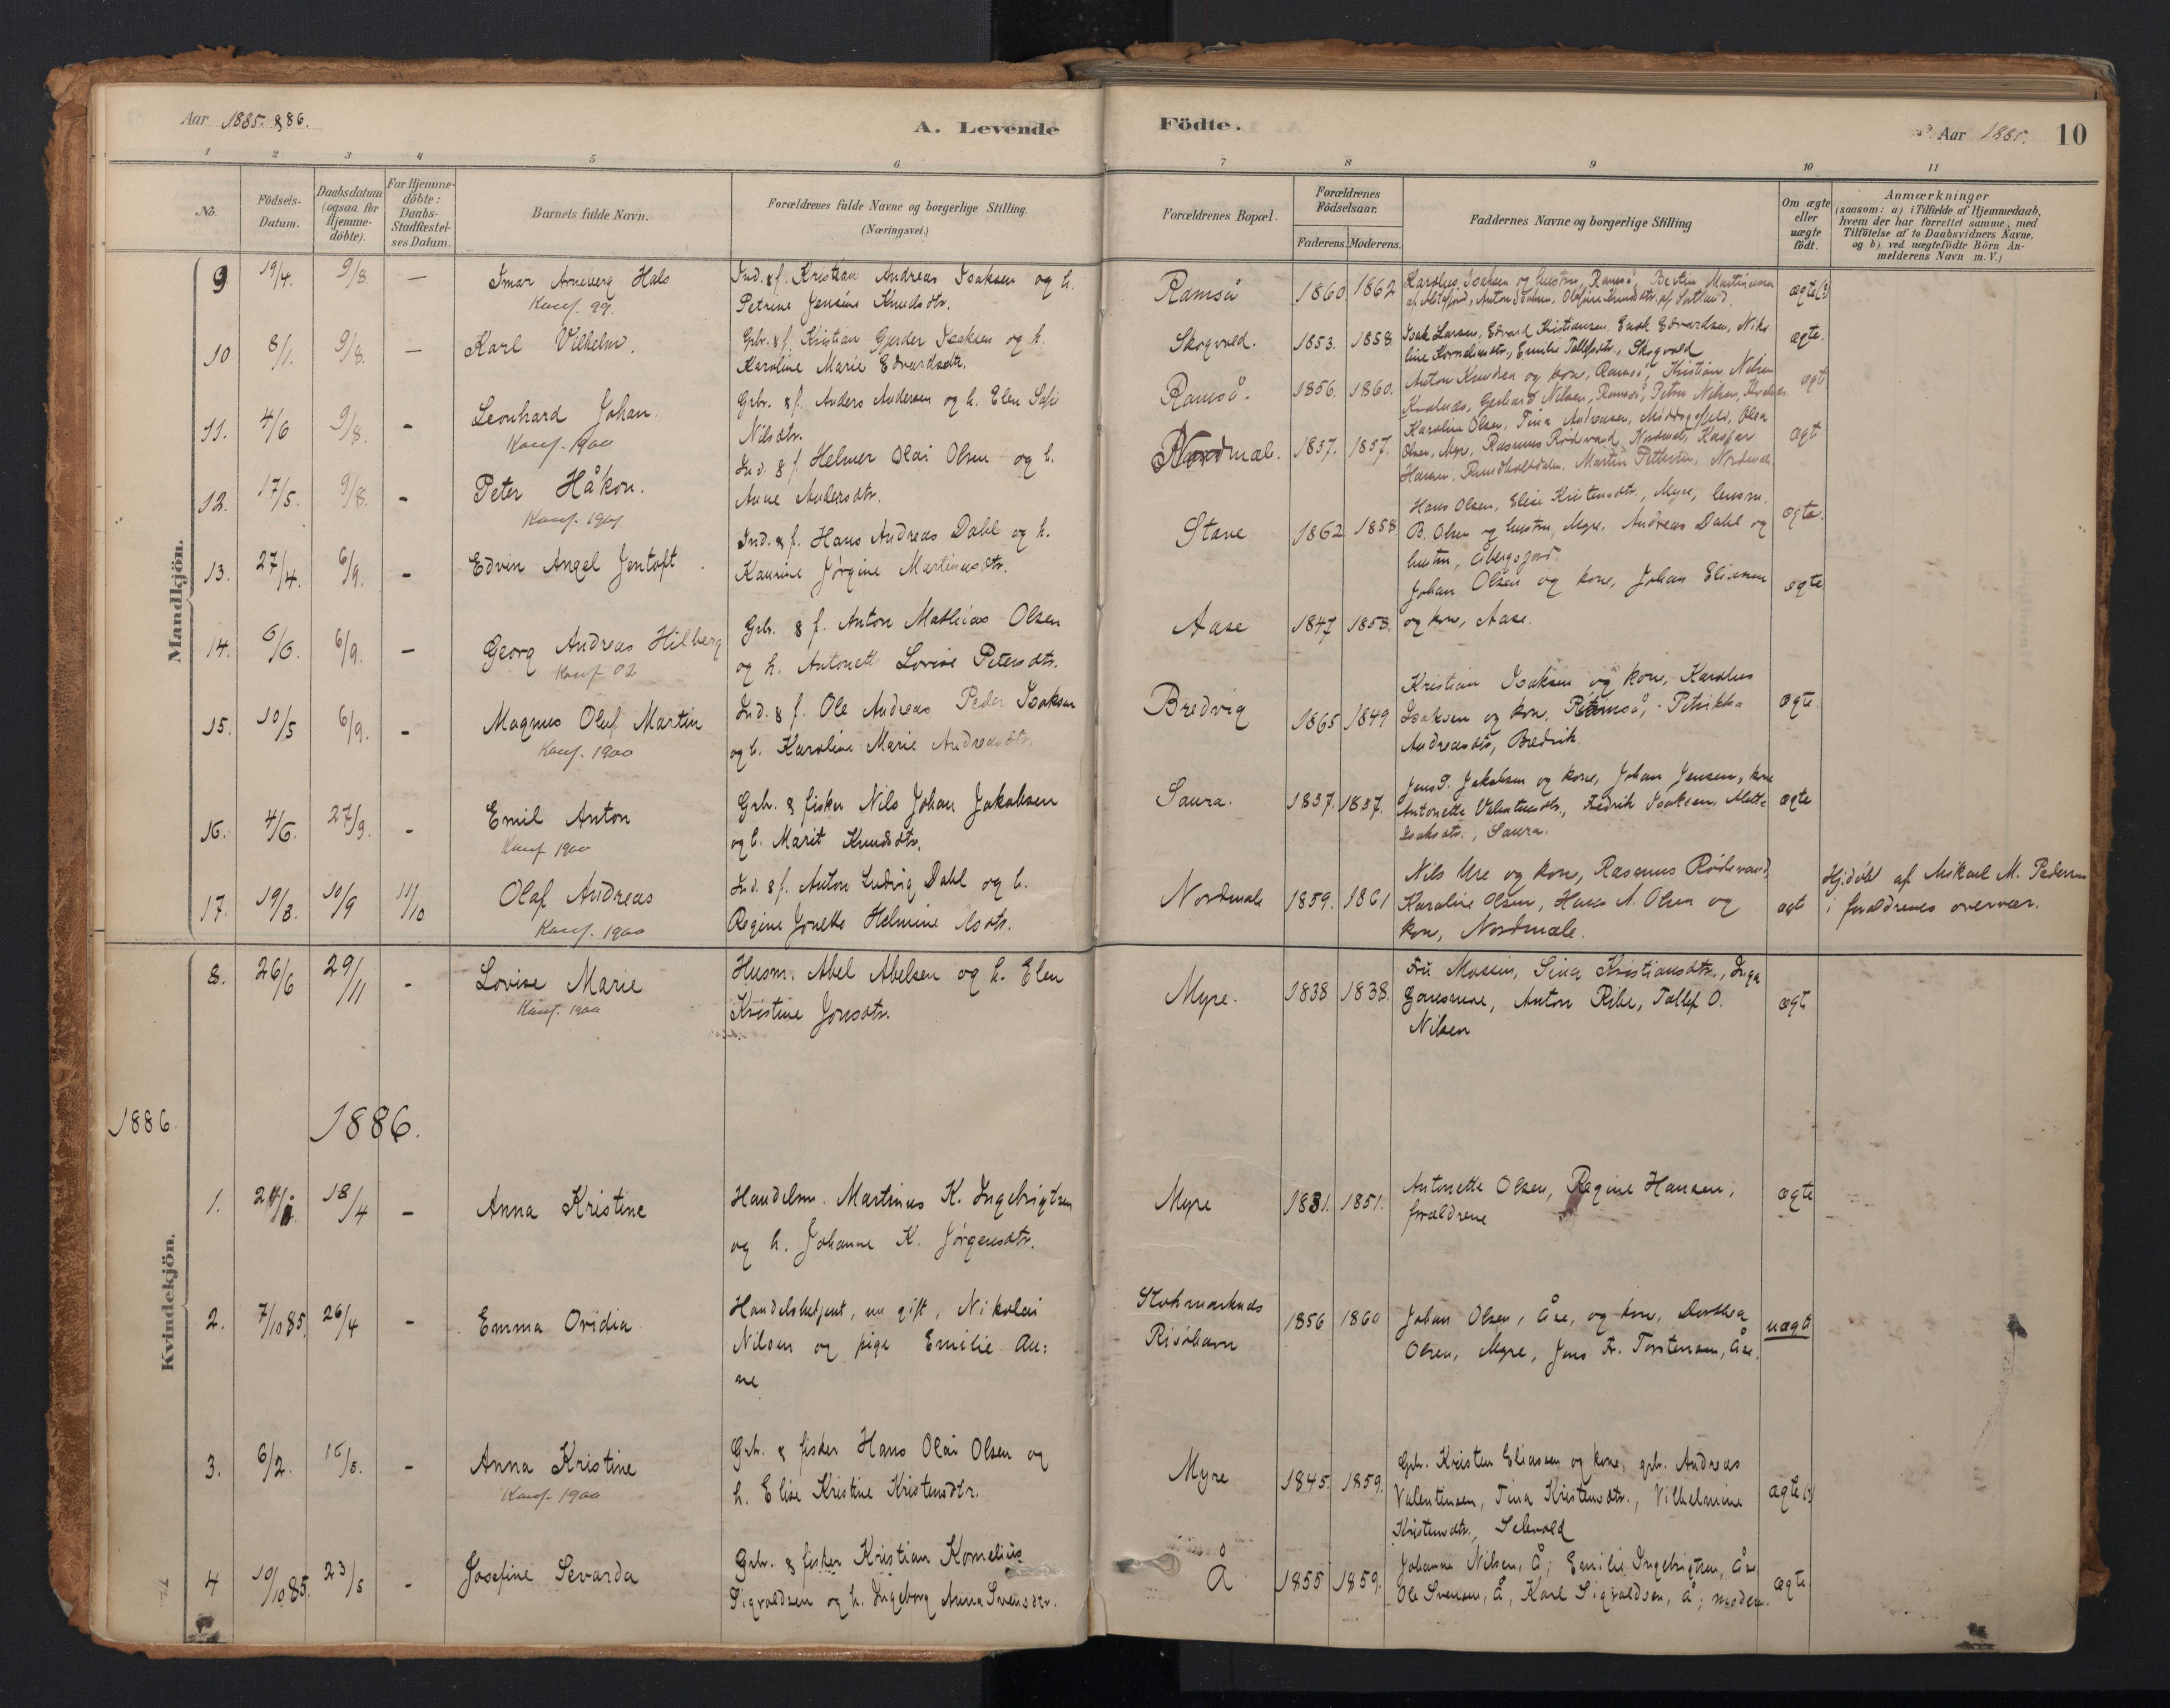 Aar 1885. & 86.
A. Levende
Födte.
Aar 1885.
10
1 2 3 4 5 6 7 8 9 10 11
No.
Födsels-Datum.
Daabsdatum (ogsaa for Hjemme-döbte).
Far Hjemme-döbte: Daabs-Stadfæstel-ses Datum.
Barnets fulde Navn.
Forældrenes fulde Navne og borgerlige Stilling. (Næringsvei.)
Forældrenes Bopæl.
Forældrenes Födselsaar.
Faderens. Moderens.
Faddernes Navne og borgerlige Stilling
Om ægte eller uægte födt.
Anmærkninger
(saasom: a) i Tilfælde af Hjemmedaab,
hvem der har forrettet samme, med
Tilföielse af to Daabsvidners Navne.
og b) ved uægtefödte Börn An-
melderens Navn m. V.)
Mandkjön.
9 19/4. 9/8. — Imar Arneberg Hals
Konf. 99.
Ind. & f. Kristian Andreas Isaksen og h.
Petrine Jensine Knudsdtr.
Ramså 1860 1862
Karolus Isaksen og hustru, Ramså, Martinussen
Anton Isaksen, Knudsdtr. af
ægte (?)
10 8/1. 9/8. — Karl Vilhelm.
Grbr. & f. Kristian Gjerder Isaksen og h.
Karoline Marie Edvardsdtr.
Skogvold. 1853. 1858.
Isak Larsen, Edvard Kristiansen, Enok Edvardsen, Niko-
line Korneliusdtr., Emilie Tollefsdtr., Skogvold
ægte.
11. 4/6 9/8. - Leonhard Johan.
Konf. 1900
Grbr. & f. Anders Andersen og h. Elen Sofie
Nilsdtr.
Ramså. 1856. 1860.
Anton Knudsen og kone, Ramså, Kristian Nilsen
Kvalnæs, Gerhard Nilsen, Ramså, Petra Nilsen,
ægte
12. 17/5. 9/8. - Peter Håkon.
Konf. 1901
Ind. & f. Helmer Olai Olsen og h.
Anne Andersdtr.
Nordmæle. 1857. 1857.
Karoline Olsen, Tina Andreasen, Olea
Olsen, Myre, Rasmus Rödsvand, Nordmæle, Kaspar
Hansen, Martin Pettersen, Nordmæle.
ægt
13. 27/4. 6/9. - Edvin Angel Jentoft.
Ind. & f. Hans Andreas Dahl og h.
Kanine Jørgine Martinusdtr.
Stave 1862 1858
Hans Olsen, Elise Kristensdtr., Myre, lensm.
B. Olsen og hustru, Myre, Andreas Dahl og
hustru, Åbergsjord.
ægte.
14. 6/6. 6/9. - Georg Andreas Hilberg
Konf 02
Grb. & f. Anton Mathias Olsen
og h. Antonett Lovise Petersdtr.
Aase 1847 1858.
Johan Olsen og kone, Johan Eliassen
og kone, Aase.
ægte
15. 10/5 6/9. - Magnus Oluf Martin
Konf. 1900
Ind. & f. Ole Andreas Peder Isaksen
og h. Karoline Marie Andreasdtr.
Bredvig 1865 1849
Kristian Isaksen og kone, Karolus
Isaksen og kone, Ramså, Petrikka
Andreasdtr, Bredvik.
ægte.
16. 4/6. 27/9. - Emil Anton
Konf 1900
Grb. & fisker Nils Johan Jakobsen
og h. Marit Knudsdtr.
Saura. 1837. 1837.
Jens P. Jakobsen og kone, Johan Jensen, kone
Antonette Valentinsdtr., Fredrik Isaksen, Mette
Isaksdtr., Saura.
ægte
17. 19/8. 10/9 11/10 Olaf Andreas
Konf. 1900
Ind. & f. Anton Ludvig Dahl og h.
Regine Jonette Helmine Olsdtr.
Nordmæle 1859. 1861
Nils Ure og kone, Rasmus Rödsvand,
Karoline Olsen, Hans A. Olsen og
kone, Nordmæle.
ægte
Hj.döbt af Mikael M. Pedersen
i forældrenes overvær.
8. 26/6 29/11 - Lovise Marie
Konf. 1900
Husm. Abel Abelsen og h. Elen
Kristine Jonsdtr.
Myre. 1838 1838.
Fru Mossin, Sina Kristiansdtr., Inga
Anton Ribe, Tollef O.
Nilsen
ægte
1886.
1886.
Kvindekjön.
1. 18/4 - Anna Kristine
Handelsm. Martinus K. Ingebrigtsen
og h. Johanne K. Jørgensdtr.
Myre 1831. 1851.
Antonette Olsen, Regine Hansen,
forældrene
ægte
2. 7/10 85. 26/4 - Emma Ovidia
Handelsbetjent, nu gift, Nikolai
Nilsen og pige Emilie An:
ne
Stokmarknæs
Risöhavn
1856 1860
Johan Olsen, Åse, og kone, Dorthea
Olsen, Myre, Jens Fr. Torstensen, Åse.
uægte
3. 6/2. 16/5. - Anna Kristine
Konf. 1900
Grb. & fisker Hans Olai Olsen og
h. Elise Kristine Kristensdtr.
Myre 1845. 1859.
Grb. Kristen Eliassen og kone, grb. Andreas
Valentinsen, Tina Kristensdtr., Vilhelmine
Kristensdtr., Selvold
ægte (?)
4 10/10 85. 23/5 - Josefine Sevarda
Grb. & fisker Kristian Kornelius
Sigvaldsen og h. Ingeborg Anna Svensdtr.
Å 1855 1859.
Johanne Nilsen, Å; Emilie Ingebrigtsen, Åse,
Ole Svensen, Å, Karl Sigvaldsen, Å; moderen.
ægte